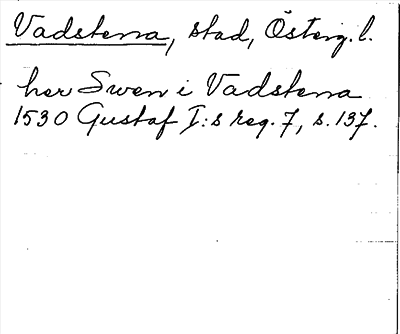 Vadstena, stad, Österg. l.
her Swen i Vadstena
1530 Gustaf I:s reg. 7, s. 137.